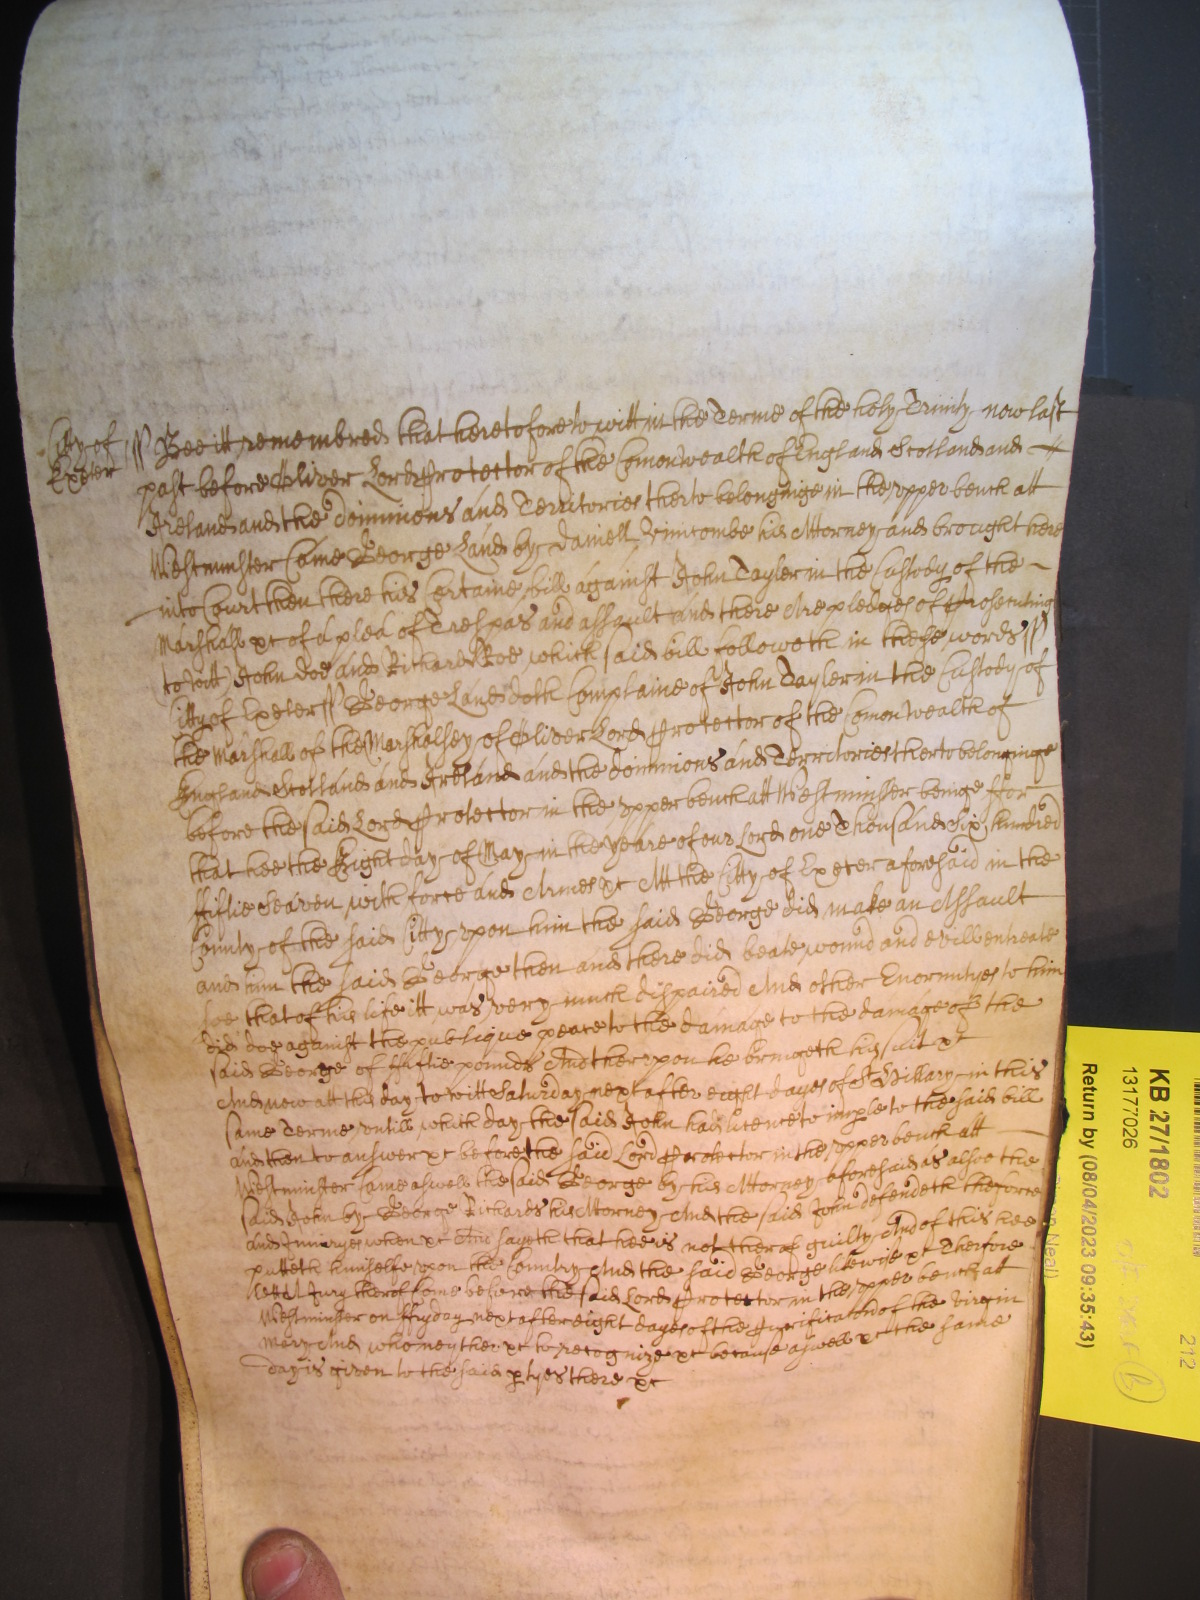 Citty of
Exeter
// Bee itt remembred that heretofore to witt in the Terme of the holy Trinity now last
past before Oliver Lord Protector of the Comonwealth of England Scotland and
Ireland and the dominions and Territories therto belonginge in the upper bench att
Westminster Came George Land by Daniell Vinicombe his Attorney and brought here
into Court then there his Certaine bill against John Tayler in the Custody of the
Marshall &c of a plea of Trespas and assault And there Are pledges of Prosecuting
to witt John Doe and Richard Roe which said bill followeth in these words //
Citty of Exeter // George Land doth Complaine of John Tayler in the Custody of
the Marshall of the Marshalsey of Oliver Lord Protector of the Comonwealth of
England Scotland and Ireland and the dominions and Territories therto belonginge
before the said Lord Protector in the upper bench att Westminster beinge For
that hee the Eight day of May in the yeare of our Lord one Thousand Six hundred
fiftie Seaven with force and Armes &c Att the Citty of Exeter aforesaid in the
County of the said Citty upon him the said George did make an Assault
and him the said George then and there did beate wound and evill entreate
soe that of his life itt was very much dispaired And other Enormityes to him
did doe against the publique peace to the damage to the damage of the
said George of fiftie pounds And therupon he bringeth his suit &c
And now att this day to witt Saturday next after eight dayes of St Hillary in this
same Terme untill which day the said John had licence to imple to the said bill
and then to answer &c before the said Lord Protector in the upper bench att
Westminster Came aswell the said George by his Attorney aforesaid as alsoe the
said John by George Richards his Attorney And the said John defendeth the force
and Iniuryes when &c And sayth that hee is not therof guilty And of this hee
putteth himselfe upon the Country And the said George likewise &c Therfore
lett A Jury therof Come before the said Lord Protector in the upper bench att
Westminster on ffryday next after eight dayes of the Purificacon of the Virgin
Mary And who neyther &c to recognize &c because aswell &c the same
day is given to the said ptyes there &c
KB 27/1802
13177026
Return by (08/04/2023 09:35:43)
212
Neal)